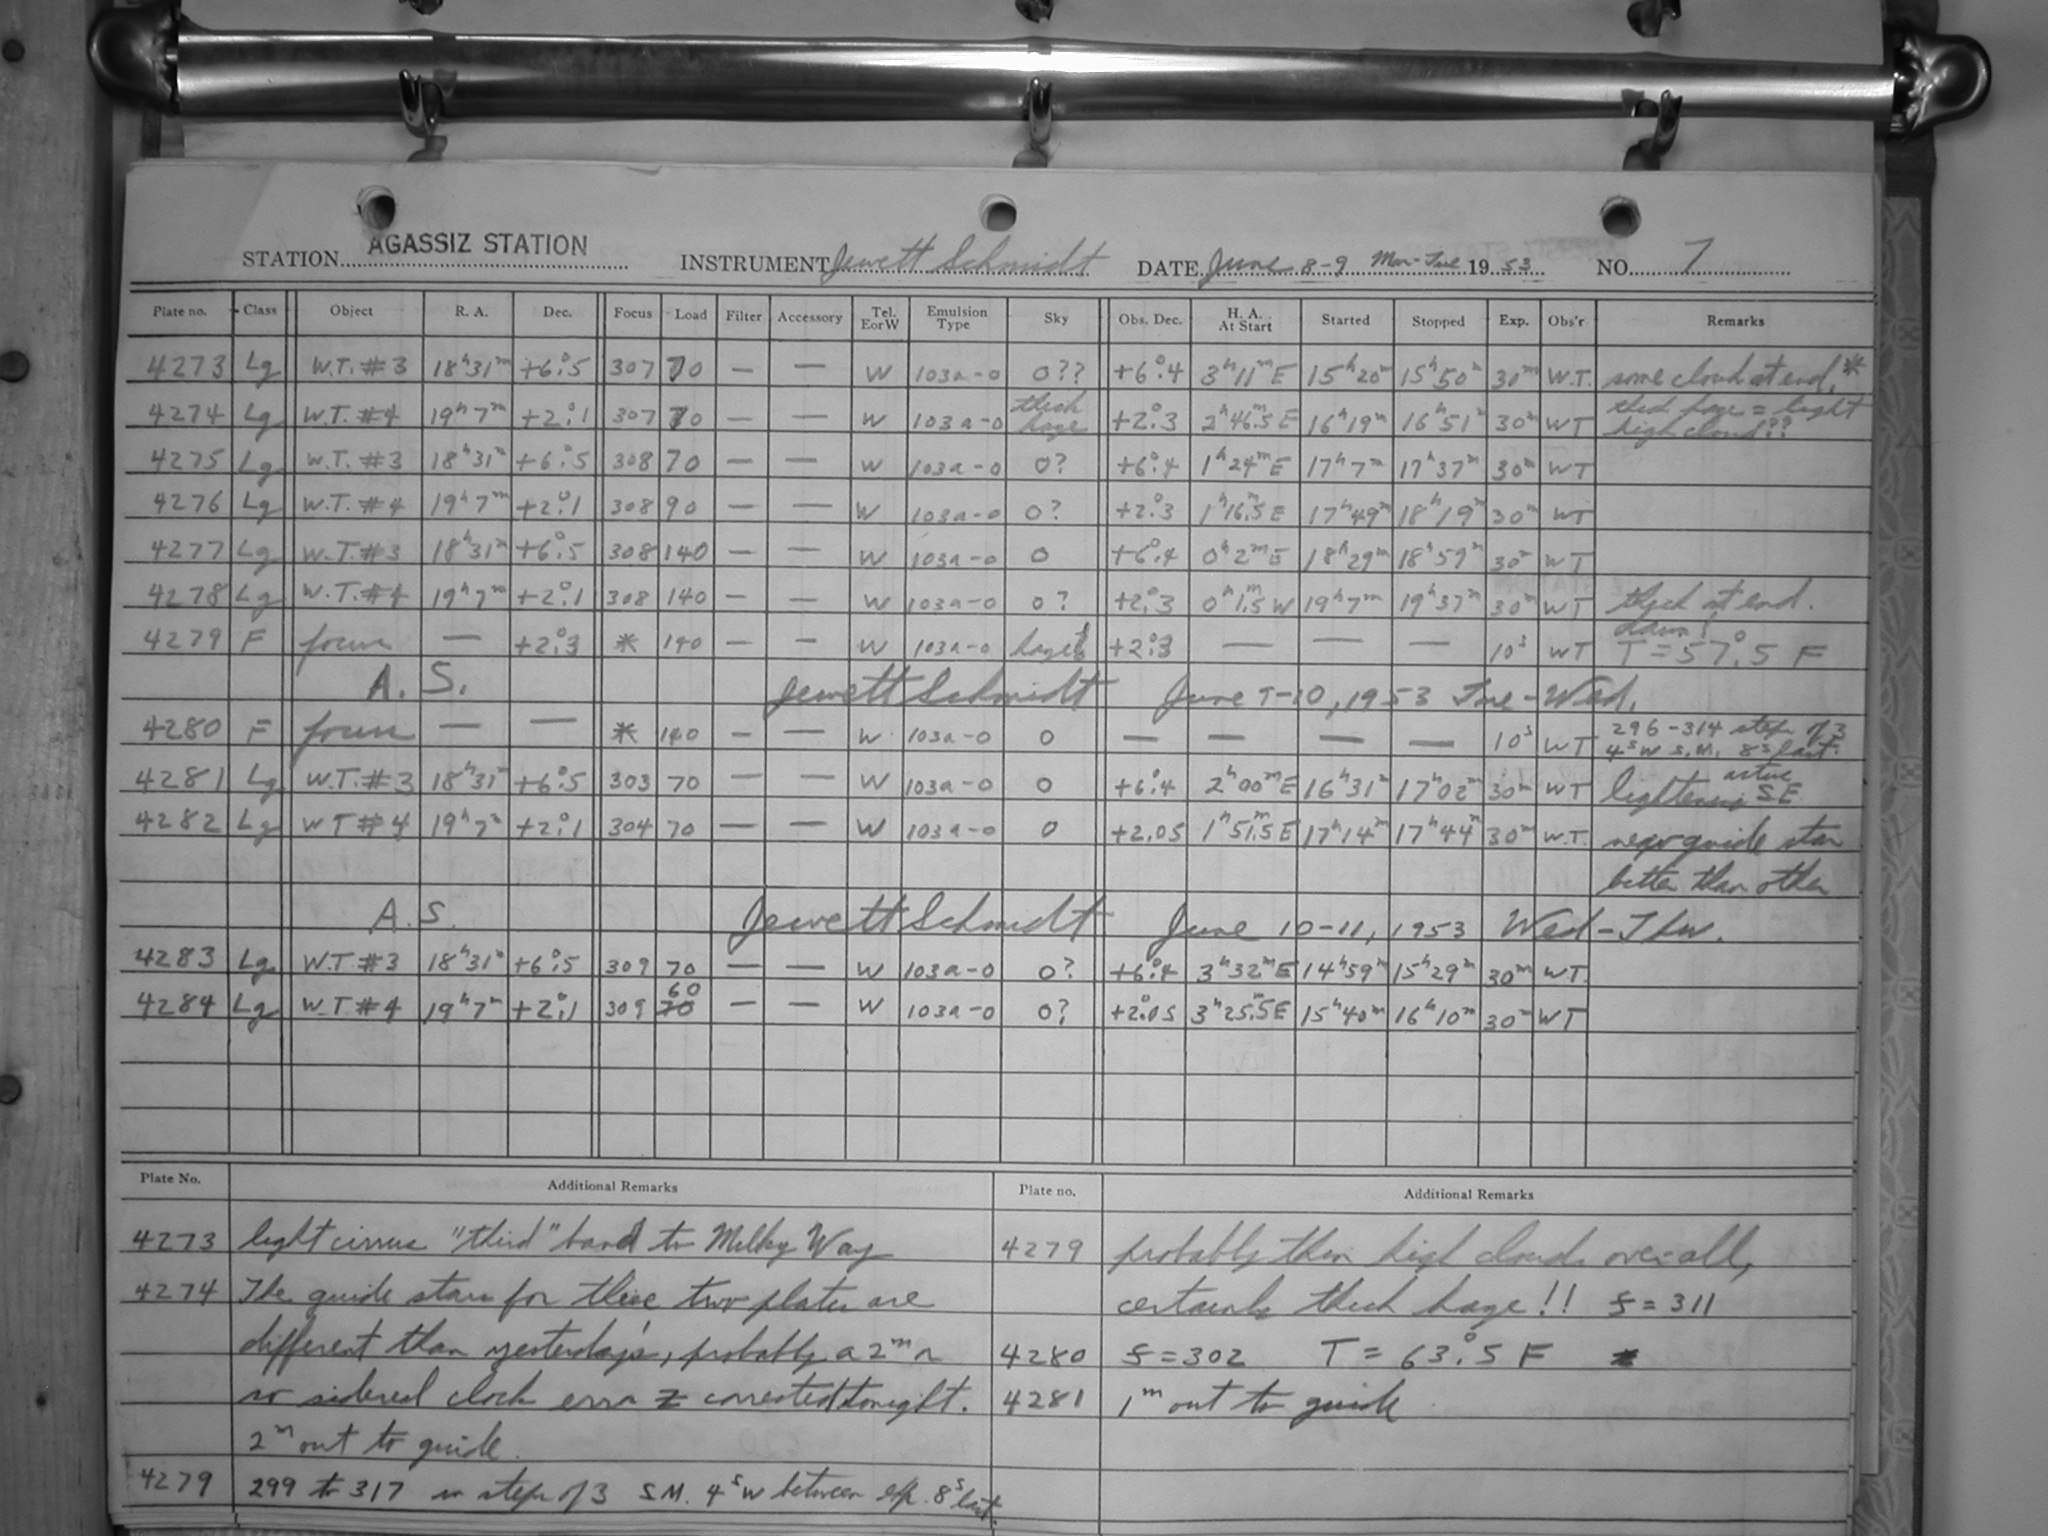 STATION AGASSIZ STATION INSTRUMENT Jewett Schmidt DATE June 8-9 Mon-Tue 1953 NO. 7
Plate no. Class Object R. A. Dec. Focus Load Filter Accessory Tel. E or W Emulsion Type Sky Obs. Dec. H. A. At Start Started Stopped Exp. Obs'r Remarks
4273 Lg W.T. #3 18h31m +6°.5 307 70 — — W 103a-O 0?? +6°.4 3h11mE 15h20m 15h50m 30m W.T. some cloud at end.*
4274 Lg W.T. #4 19h7m +2°.1 307 70 — — W 103a-O thick haze +2°.3 2h46m.5E 16h19m 16h51m 30m WT thick haze = light high cloud??
4275 Lg W.T. #3 18h31m +6°.5 308 70 — — W 103a-O 0? +6°.4 1h24mE 17h7m 17h37m 30m WT
4276 Lg W.T. #4 19h7m +2°.1 308 90 — — W 103a-O 0? +2°.3 1h16m.5E 17h49m 18h19m 30m WT
4277 Lg W.T. #3 18h31m +6°.5 308 140 — — W 103a-O 0 +6°.4 0h2mE 18h29m 18h59m 30m WT
4278 Lg W.T. #4 19h7m +2°.1 308 140 — — W 103a-O 0? +2°.3 0h1m.5W 19h7m 19h37m 30m WT thick at end.
4279 F focus — +2°.3 * 140 — — W 103a-O +2°.3 — — — 10s WT dawn! T=57°.5 F
A. S. Jewett Schmidt June 9-10, 1953 Tue-Wed.
4280 F focus — — * 140 — — W 103a-O 0 — — — — 10s WT 296-314 steps of 3 4sW S.M. 8s last.
4281 Lg W.T. #3 18h31m +6°.5 303 70 — — W 103a-O 0 +6°.4 2h00mE 16h31m 17h02m 30m WT lightening active SE
4282 Lg WT #4 19h7m +2°.1 304 70 — — W 103a-O 0 +2.05 1h51m.5E 17h14m 17h44m 30m W.T. new guide star
better than other
A.S. Jewett Schmidt June 10-11, 1953 Wed-Thur.
4283 Lg W.T. #3 18h31m +6°.5 309 70 — — W 103a-O 0? +6°.4 3h32mE 14h59m 15h29m 30m WT.
4284 Lg W.T #4 19h7m +2°.1 309 70 60 — — W 103a-O 0? +2°.05 3h25m.5E 15h40m 16h10m 30m WT
Plate No. Additional Remarks Plate no. Additional Remarks
4273 light cirrus "third" band to Milky Way
4274 The guide stars for these two plates are
different than yesterday's, probably a 2m or
so sidereal clock error corrected tonight.
2m out to guide.
4279 299 to 317 in steps of 3 S.M. 4sW between exp. 8s last.
4279 probably thin high clouds over all,
certainly thick haze!! f=311
4280 f=302 T=63°.5 F
4281 1m out to guide